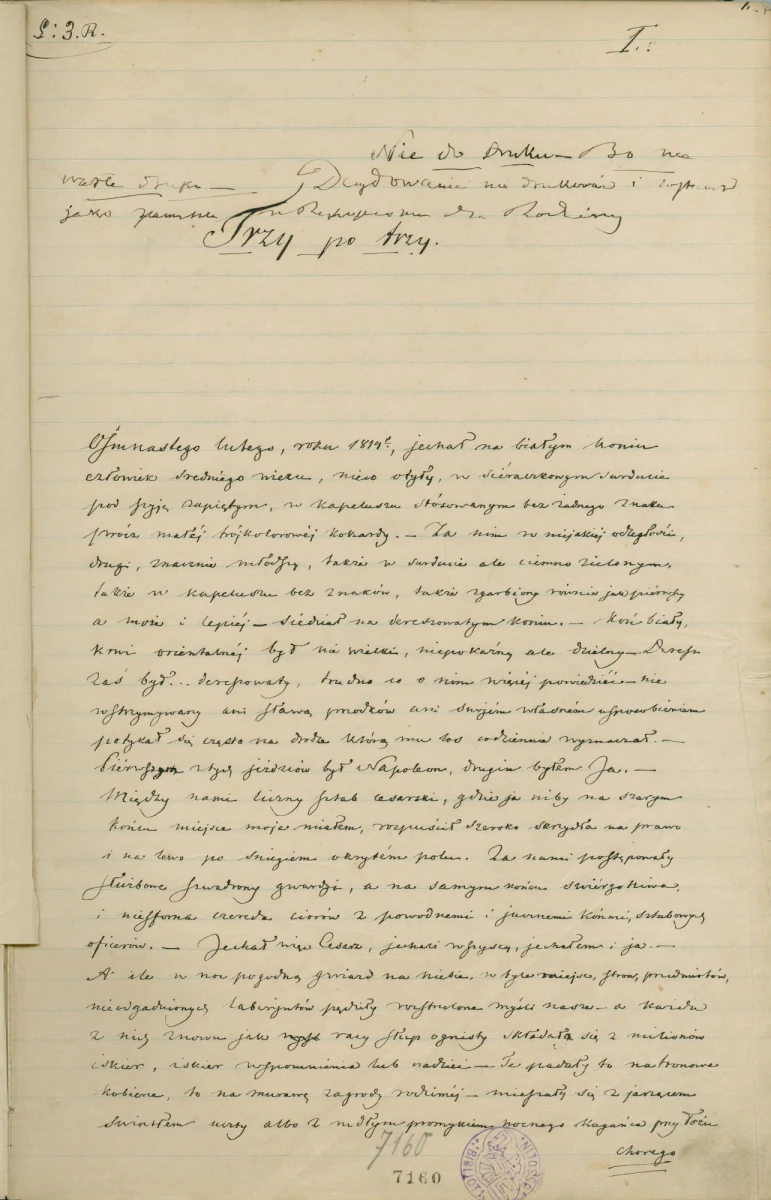 L: 3. R.
I.
Nie do druku — Bo nie
warte druku — nie drukować i
jako w Rękopismie dla Rodziny
Trzy po trzy.
Ośmnastego lutego, roku 1814º, jechał na białym koniu
człowiek średniego wieku, nieco otyły, w siéraczkowym surducie
pod szyję zapiętym, w kapeluszu stósowanym bez żadnego znaku
prócz małéj trójkolorowéj kokardy. — Za nim w niejakiéj odległości,
drugi, znacznie młodszy, także w surducie ale ciemno zielonym,
także w kapeluszu bez znaków, także zgarbiony równie jak piérwszy
a może i lepiéj — siedział na dereszowatym koniu. — Koń biały,
krwi orientalnéj był nie wielki, niepokaźny ale dzielny — Deresz
zaś był... dereszowaty, trudno co o nim więcéj powiedzieć — nie
wstrzymywany ani sławą przodków ani swojém własném usposobieniem
potykał się często na drodze którą mu los codziennie wyznaczał. —
Piérwszym z tych jeźdźców był Napoleon, drugim byłem Ja. —
Między nami liczny sztab cesarski, gdzie ja niby na szarym
końcu miejsce moje miałem, rozpuścił szeroko skrzydła na prawo
i na lewo po śniegiem okrytém polu. Za nami postępowały
służbowe szwadrony gwardji, a na samym końcu świergotliwa
i niesforna czereda ciurów z powodnemi i jucznemi końmi, sztabowych
oficerów. — Jechał więc Cesarz, jechali wszyscy, jechałem i ja. —
A ile w noc pogodną gwiazd na niebie, w tyle miejsc, stron, przedmiotów,
nieodgadnionych labiryntów pędziły rozstrzelone myśli nasze — a każda
z nich znowu jak racy słup ognisty składała się z milionów
iskier, iskier wspomnienia lub nadziei — Te padały to na tronowe
kobierce, to na murawę zagrody rodzimej — mieszały się z jarzącem
światłem uczty albo z mdłym promykiem nocnego kagańca przy łożu
chorego
7160
7160